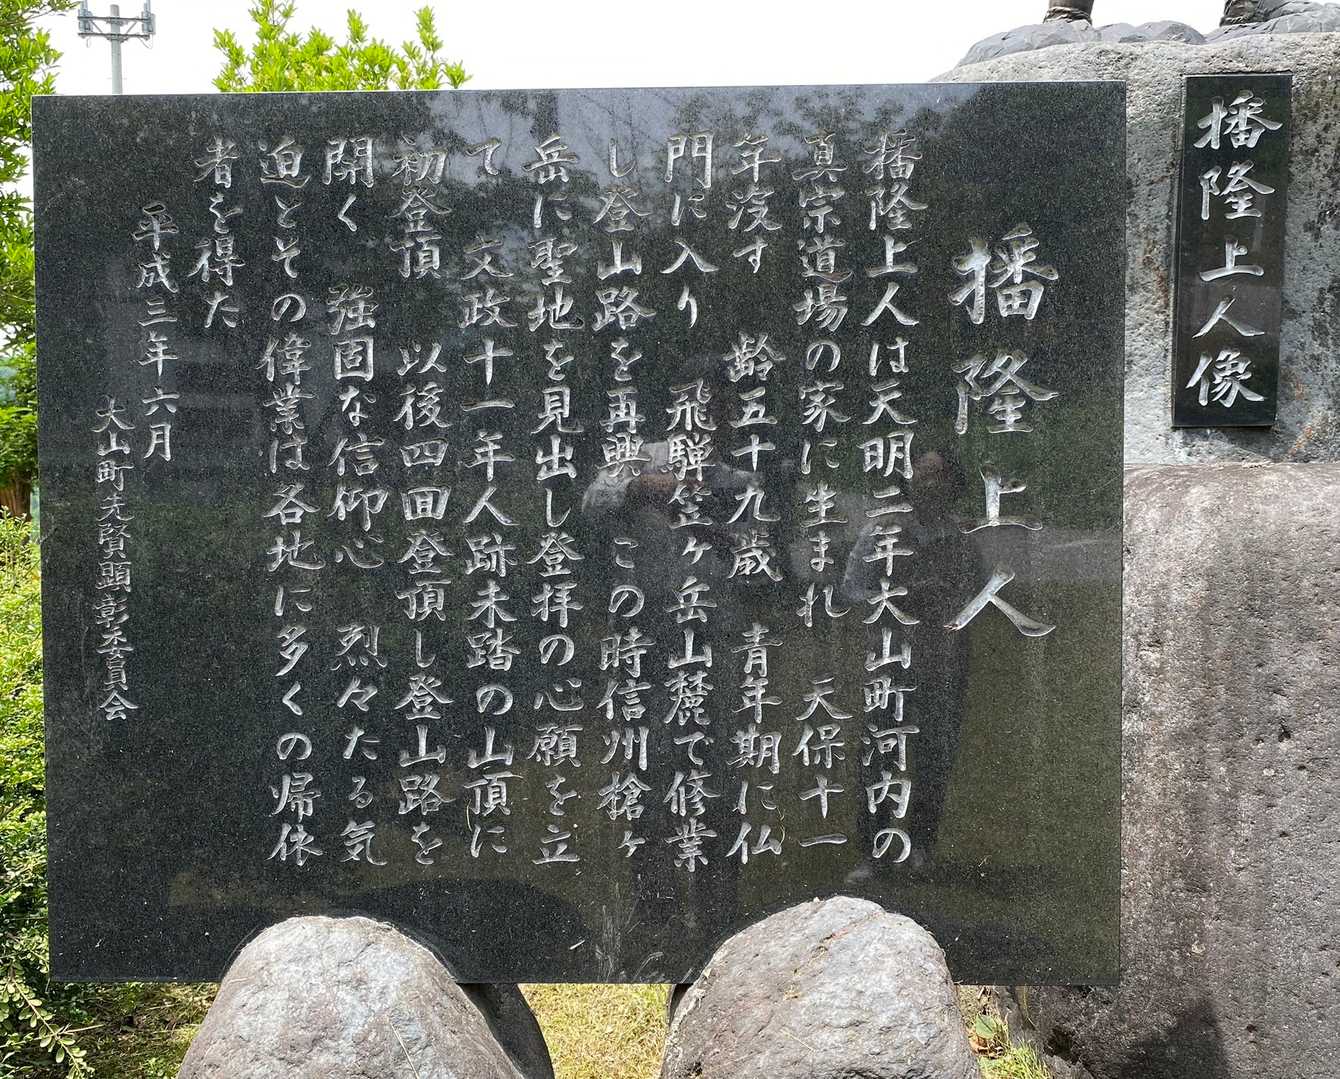 播隆上人像
播隆上人
播隆上人は天明二年大山町河内の
真宗道場の家に生まれ 天保十一
年没す 齢五十九歳 青年期に仏
門に入り 飛騨笠ヶ岳山麓で修業
し登山路を再興 この時信州槍ヶ
岳に聖地を見出し登拝の心願を立
て 文政十一年人跡未踏の山頂に
初登頂 以後四回登頂し登山路を
開く 強固な信仰心 烈々たる気
迫とその偉業は各地に多くの帰依
者を得た
平成三年六月
大山町先賢顕彰委員会